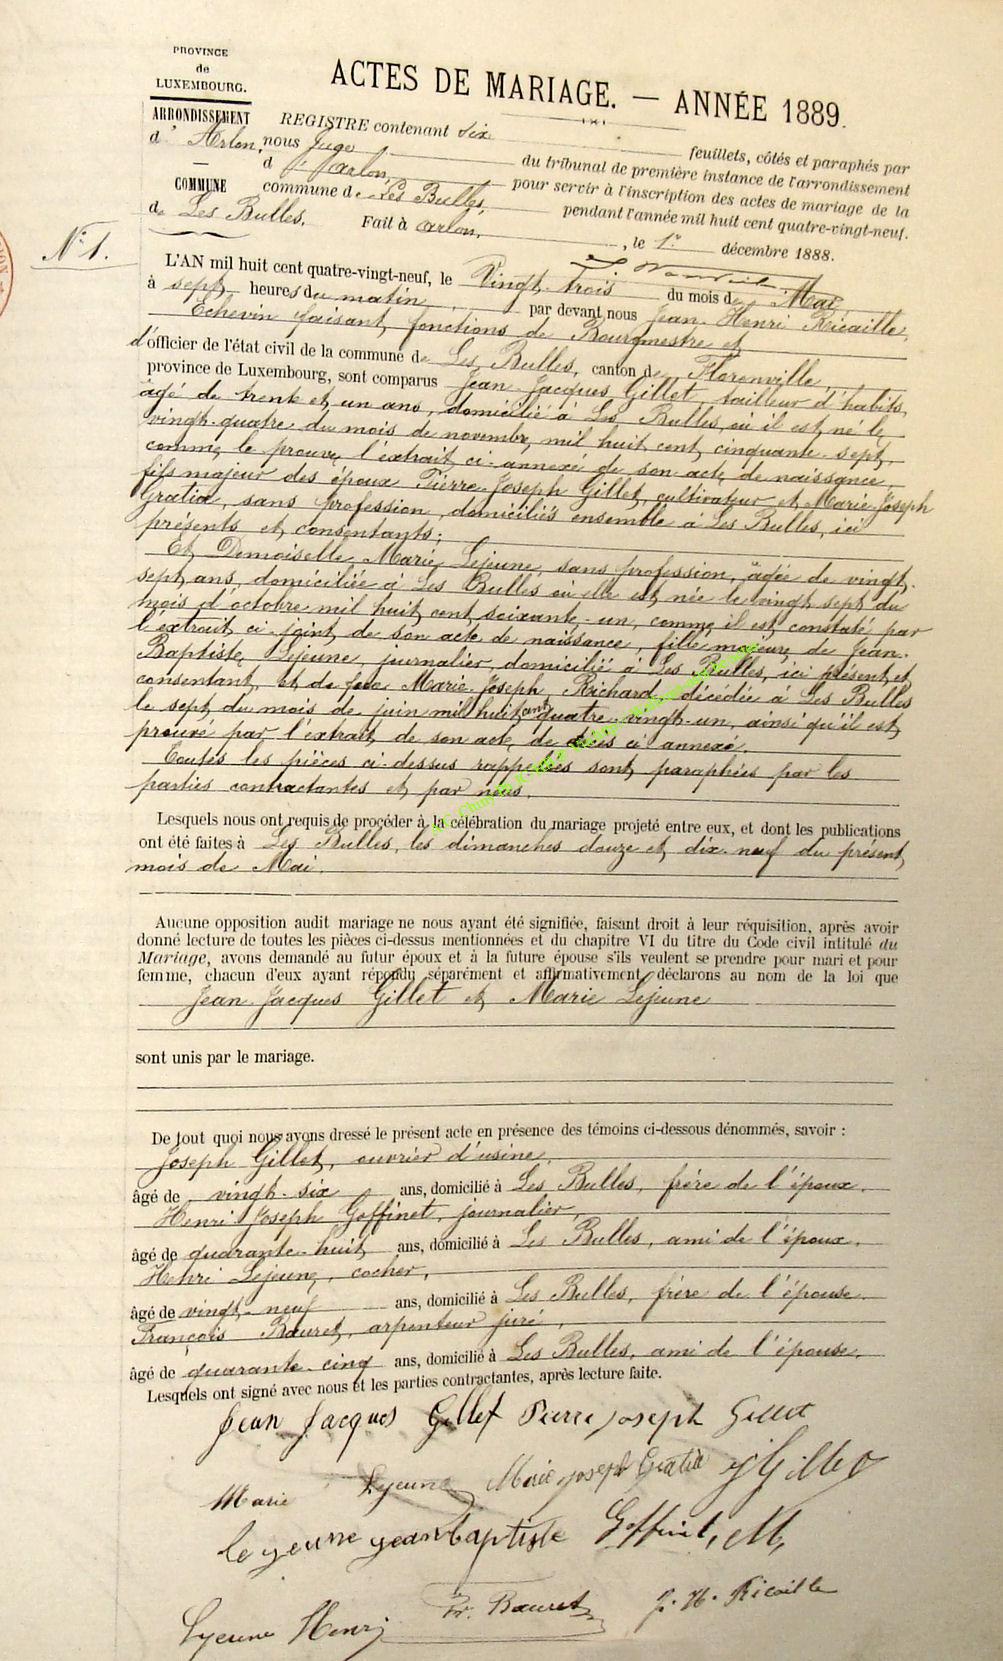 PROVINCE
de
LUXEMBOURG.
ARRONDISSEMENT
d'Arlon,
COMMUNE
de Les Bulles.
N° 1.
ACTES DE MARIAGE. — ANNÉE 1889.
REGISTRE contenant six feuillets, côtés et paraphés par
nous Juge du tribunal de première instance de l'arrondissement
d'Arlon, pour servir à l'inscription des actes de mariage de la
commune de Les Bulles, pendant l'année mil huit cent quatre-vingt-neuf.
Fait à Arlon, , le 1er décembre 1888.
L'AN mil huit cent quatre-vingt-neuf, le Vingt-trois du mois de Mai
à sept heures du matin par devant nous Jean-Henri Ricaille,
Echevin faisant fonctions de Bourgmestre et
d'officier de l'état civil de la commune de Les Bulles, canton de Florenville,
province de Luxembourg, sont comparus Jean Jacques Gillet, tailleur d'habits,
âgé de trente et un ans, domicilié à Les Bulles, où il est né le
vingt-quatre du mois de novembre, mil huit cent cinquante-sept,
comme le prouve l'extrait ci-annexé de son acte de naissance,
fils majeur des époux Pierre-Joseph Gillet, cultivateur et Marie-Joseph
Gratia, sans profession, domiciliés ensemble à Les Bulles, ici
présents et consentants;
Et Demoiselle Marie Lejeune, sans profession, âgée de vingt-
sept ans, domiciliée à Les Bulles où elle est née le vingt sept du
mois d'octobre mil huit cent soixante-un, comme il est constaté par
l'extrait ci-joint de son acte de naissance, fille majeure de Jean-
Baptiste Lejeune, journalier, domicilié à Les Bulles, ici présent et
consentant, et de feue Marie-Joseph Richard, décédée à Les Bulles
le sept du mois de juin mil huit cent quatre-vingt-un, ainsi qu'il est
prouvé par l'extrait de son acte de décès ci annexé.
Toutes les pièces ci-dessus rappelées sont paraphées par les
parties contractantes et par nous.
Lesquels nous ont requis de procéder à la célébration du mariage projeté entre eux, et dont les publications
ont été faites à Les Bulles, les dimanches douze et dix-neuf du présent
mois de Mai.
Aucune opposition audit mariage ne nous ayant été signifiée, faisant droit à leur réquisition, après avoir
donné lecture de toutes les pièces ci-dessus mentionnées et du chapitre VI du titre du Code civil intitulé du
Mariage, avons demandé au futur époux et à la future épouse s'ils veulent se prendre pour mari et pour
femme, chacun d'eux ayant répondu séparément et affirmativement, déclarons au nom de la loi que
Jean-Jacques Gillet et Marie Lejeune
sont unis par le mariage.
De tout quoi nous avons dressé le présent acte en présence des témoins ci-dessous dénommés, savoir :
Joseph Gillet, ouvrier d'usine,
âgé de vingt-six ans, domicilié à Les Bulles, frère de l'époux.
Henri-Joseph Goffinet, journalier,
âgé de quarante-huit ans, domicilié à Les Bulles, ami de l'époux.
Henri Lejeune, cocher,
âgé de vingt-neuf ans, domicilié à Les Bulles, frère de l'épouse.
François Bauret, arpenteur juré,
âgé de quarante-cinq ans, domicilié à Les Bulles, ami de l'épouse.
Lesquels ont signé avec nous et les parties contractantes, après lecture faite.
Jean Jacques Gillet Pierre joseph Gillet
Marie Lejeune Marie joseph Gratia J Gillet
le yeune yean baptiste Goffinet, M,
Lyeune Henri Fr. Bauret J. H. Ricaille